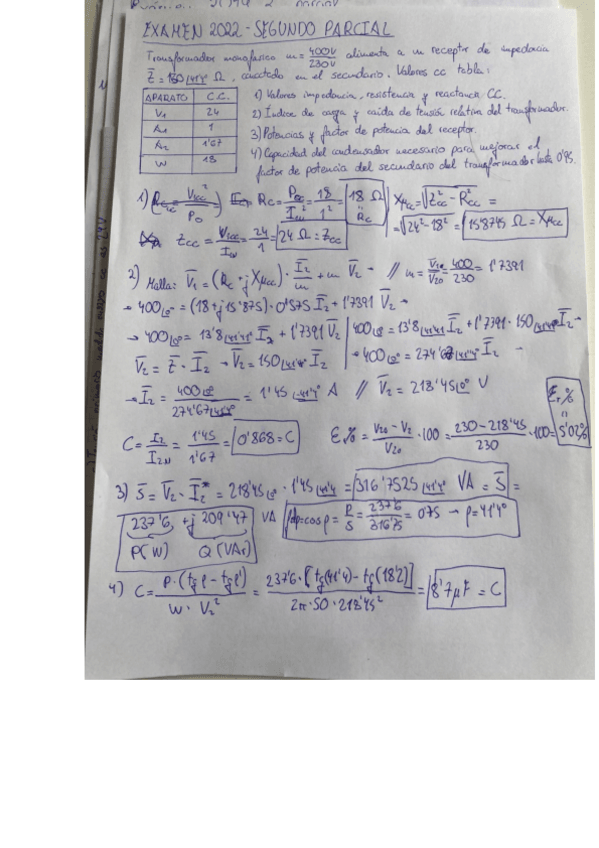 EXAMEN 2022 - SEGUNDO PARCIAL
Transformador monofásico m = 400V/230V alimenta a un receptor de impedancia
Z̄ = 150∠41'4° Ω, conectado en el secundario. Valores cc tabla:
APARATO | C.C.
V1 | 24
A1 | 1
A2 | 1'67
W | 18
1) Valores impedancia, resistencia y reactancia CC.
2) Índice de carga y caída de tensión relativa del transformador.
3) Potencias y factor de potencia del receptor.
4) Capacidad del condensador necesario para mejorar el
factor de potencia del secundario del transformador hasta 0'95.
1) Rcc = Pcc/I1N² = 18/1² = 18 Ω = Rcc | Xμcc = √(Zcc² - Rcc²) =
Zcc = V1cc/I1N = 24/1 = 24 Ω = Zcc | = √(24² - 18²) = 15'8745 Ω = Xμcc
2) Malla: V̄1 = (Rc + j Xμcc) · Ī2/m + m V̄2 → // m = V1N/V20 = 400/230 = 1'7391
→ 400∠0° = (18 + j 15'875) · 0'575 Ī2 + 1'7391 V̄2 →
→ 400∠0° = 13'8∠41'41° Ī2 + 1'7391 V̄2 | 400∠0° = 13'8∠41'41 Ī2 + 1'7391 · 150∠41'4° Ī2 →
V̄2 = Z̄ · Ī2 → V̄2 = 150∠41'4° Ī2 | → 400∠0° = 274'67∠41'4° Ī2 →
→ Ī2 = 400∠0°/274'67∠41'4° = 1'45∠-41'4° A // V̄2 = 218'45∠0° V
C = I2/I2N = 1'45/1'67 = 0'868 = C Er% = (V20 - V2)/V20 · 100 = (230 - 218'45)/230 · 100 = 5'02% = Er%
3) S̄ = V̄2 · Ī2* = 218'45∠0° · 1'45∠41'4 = 316'7525∠41'4° VA = S̄ =
237'6 + j 209'47 VA fdp = cos φ = P/S = 237'6/316'75 = 0'75 → φ = 41'4°
P(W) Q(VAr)
4) C = P · (tg φ - tg φ')/(W · V2²) = 237'6 · [tg(41'4) - tg(18'2)]/(2π · 50 · 218'45²) = 8'7 μF = C